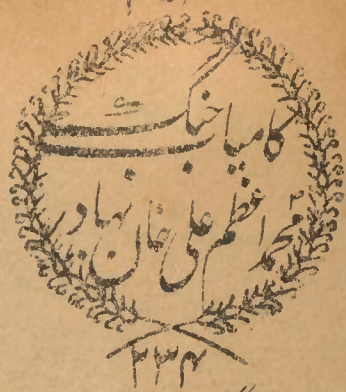 کامیاب جنگ
محمد اعظم علی خان بہادر
۲۳۴